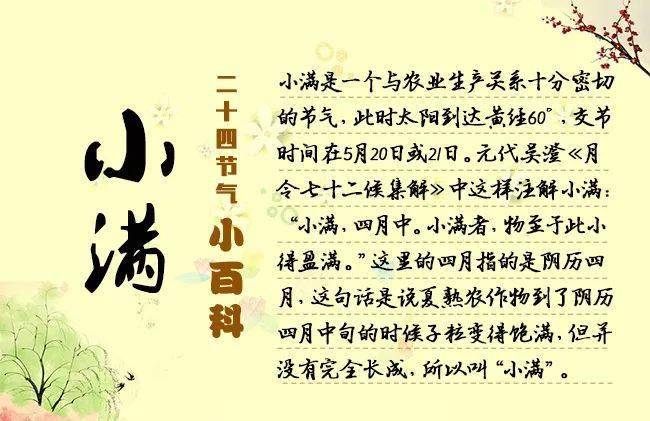 小满
二十四节气小百科
小满是一个与农业生产关系十分密切
的节气，此时太阳到达黄经60°，交节
时间在5月20日或21日。元代吴澄《月
令七十二候集解》中这样注解小满：
“小满，四月中。小满者，物至于此小
得盈满。”这里的四月指的是阴历四
月，这句话是说夏熟农作物到了阴历
四月中旬的时候子粒变得饱满，但并
没有完全长成，所以叫“小满”。